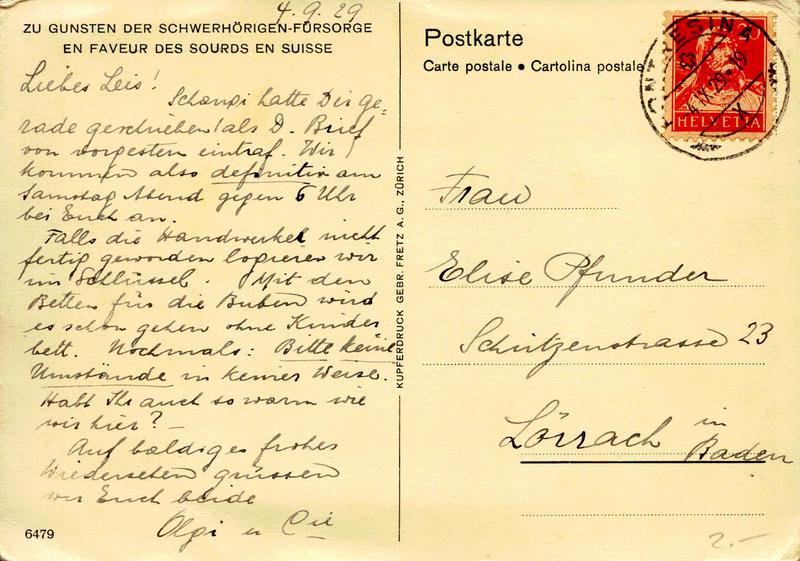 4.9.29
ZU GUNSTEN DER SCHWERHÖRIGEN-FÜRSORGE
EN FAVEUR DES SOURDS EN SUISSE
Liebes Leis!
Schangi hatte Dir ge-
rade geschrieben als D. Brief
von vorgestern eintraf. Wir
kommen also definitiv am
Samstag Abend gegen 6 Uhr
bei Euch an.
Falls die Handwerker nicht
fertig geworden logieren wir
im Schlüssel. Mit den
Betten für die Buben wird
es schon gehen ohne Kinder
bett. Nochmals: Bitte keine
Umstände in keiner Weise.
Habt Ihr auch so warm wie
wir hier? –
Auf baldiges frohes
Wiedersehen grüssen
wir Euch beide
Olgi u Cie
6479
KUPFERDRUCK GEBR. FRETZ A. G., ZÜRICH
Postkarte
Carte postale • Cartolina postale
PONTRESINA
4.IX.29.-19
X
20
HELVETIA
Frau
Elise Pfunder
Schützenstrasse 23
Lörrach in
Baden
2.–